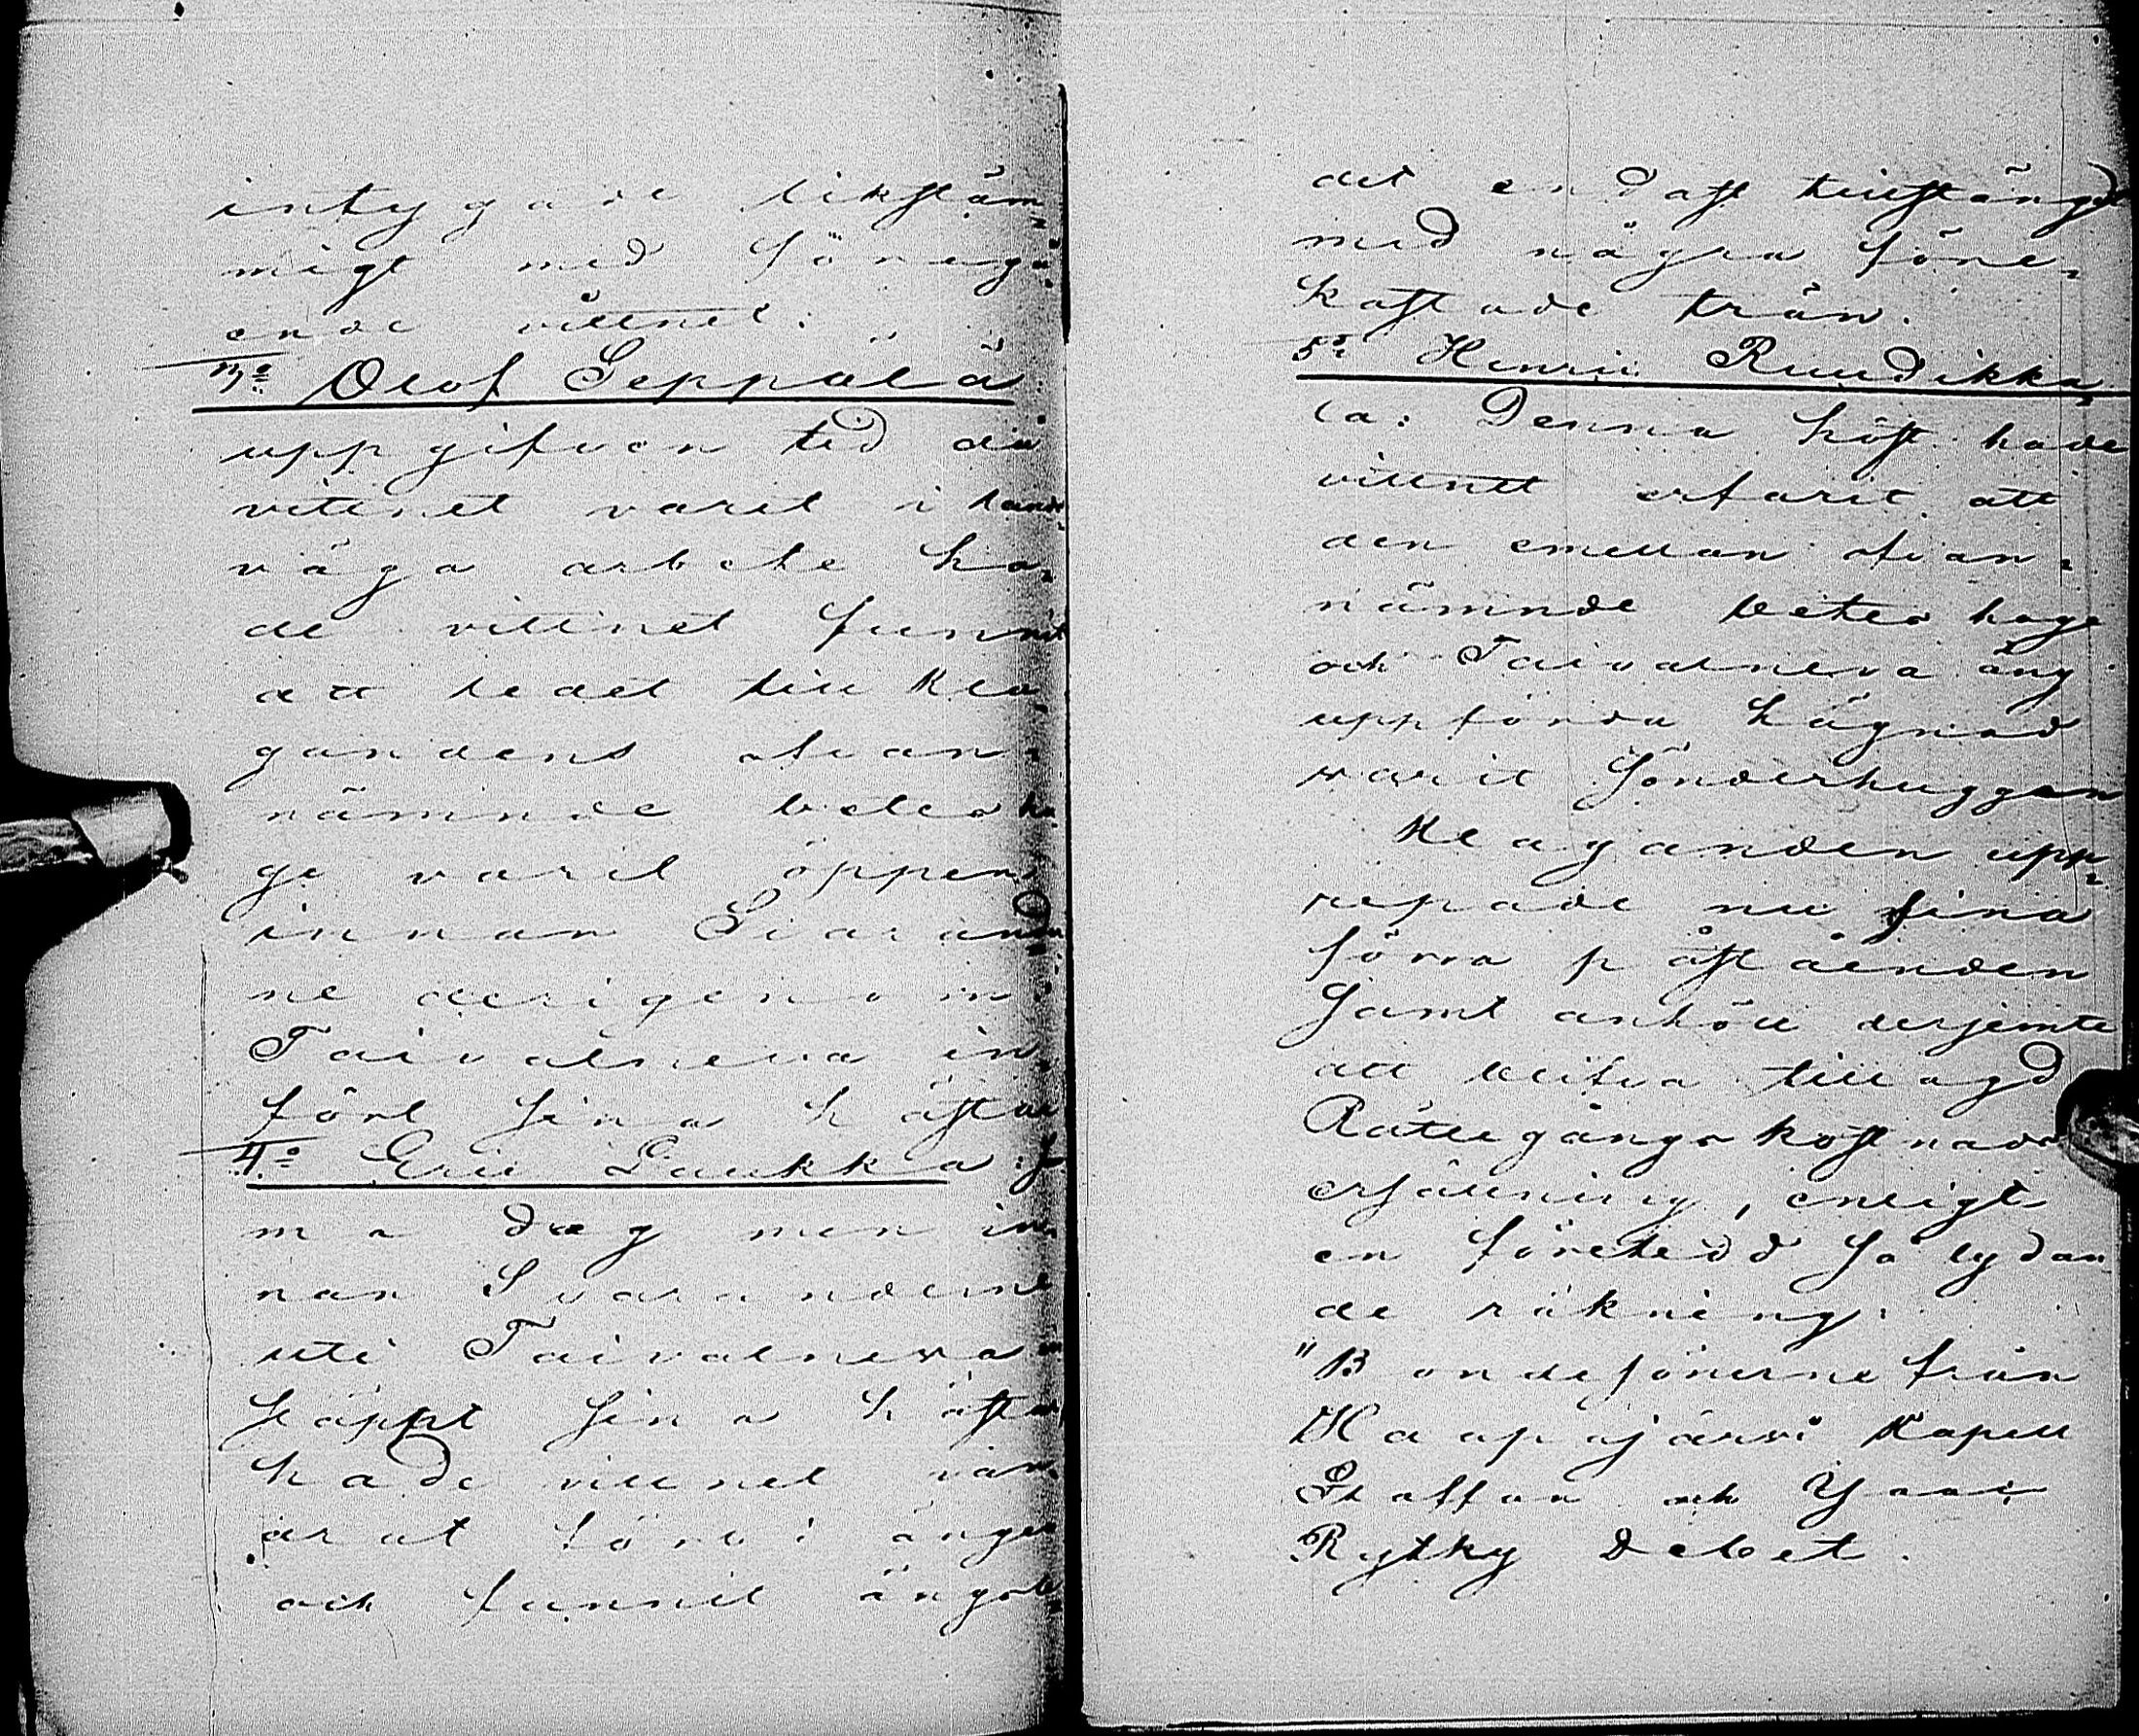 intygade likstäm-
migt med föregå-
ende vittnet.
3:o Olof Seppälä
uppgifven tid då
vittnet varit i lands
väga arbete ha-
de vittnet funnit
att ledet till Kla-
gandens ofvan-
nämnde betes ha-
ge varit öppen
innan Svarande
ne derigenom
Taivalneva in-
fört sina hästar
4:o Eric Laukka: Sa-
ma dag men in-
nan Svaranderne
uti Taivalneva in
släppt sina hästar,
hade vittnet van-
drat förbi ängen
och funnit ängsle-
det endast tillstängdt
med några före-
kastade trän.
5:o Henric Ruudikka-
la: Denna höst hade
vittnet erfarit att
den emellan ofvan-
nämnde betes hage
och Taivalneva äng
uppförda hägnad
varit sönderhuggen
Klaganden upp-
repade nu sina
förra påståenden
samt anhöll derjemte
att blifva tillagd
Rättegångs kostnads
ersättning, enligt
en företedd så lydan
de räkning:
"Bondesönerne från
Haapajärvi Kapell
Staffan och
Rytky Debet.